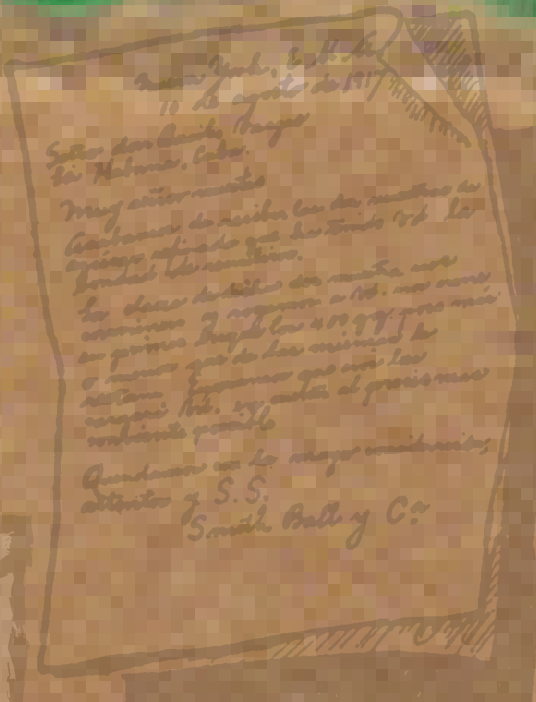 Nueva York, E. U. A.
10 de agosto de 1917
Señor don Camilo Vargas
La Habana, Cuba.
Muy señor nuestro
Acabamos de recibir las dos muestras de
azúcar refinado que ha tenido Vd. la
bondad de remitirnos.
La clase de dichas dos muestras nos
conviene y rogamos a Vd. nos
su primer buque los 400 qq. poco más
o menos que de las mismas le
restan. Esperamos que nos las
cargará Vd. en cuenta al precio más
conveniente posible
Quedamos con la mayor consideración,
atentos y S. S.
Smith, Bull y Cª